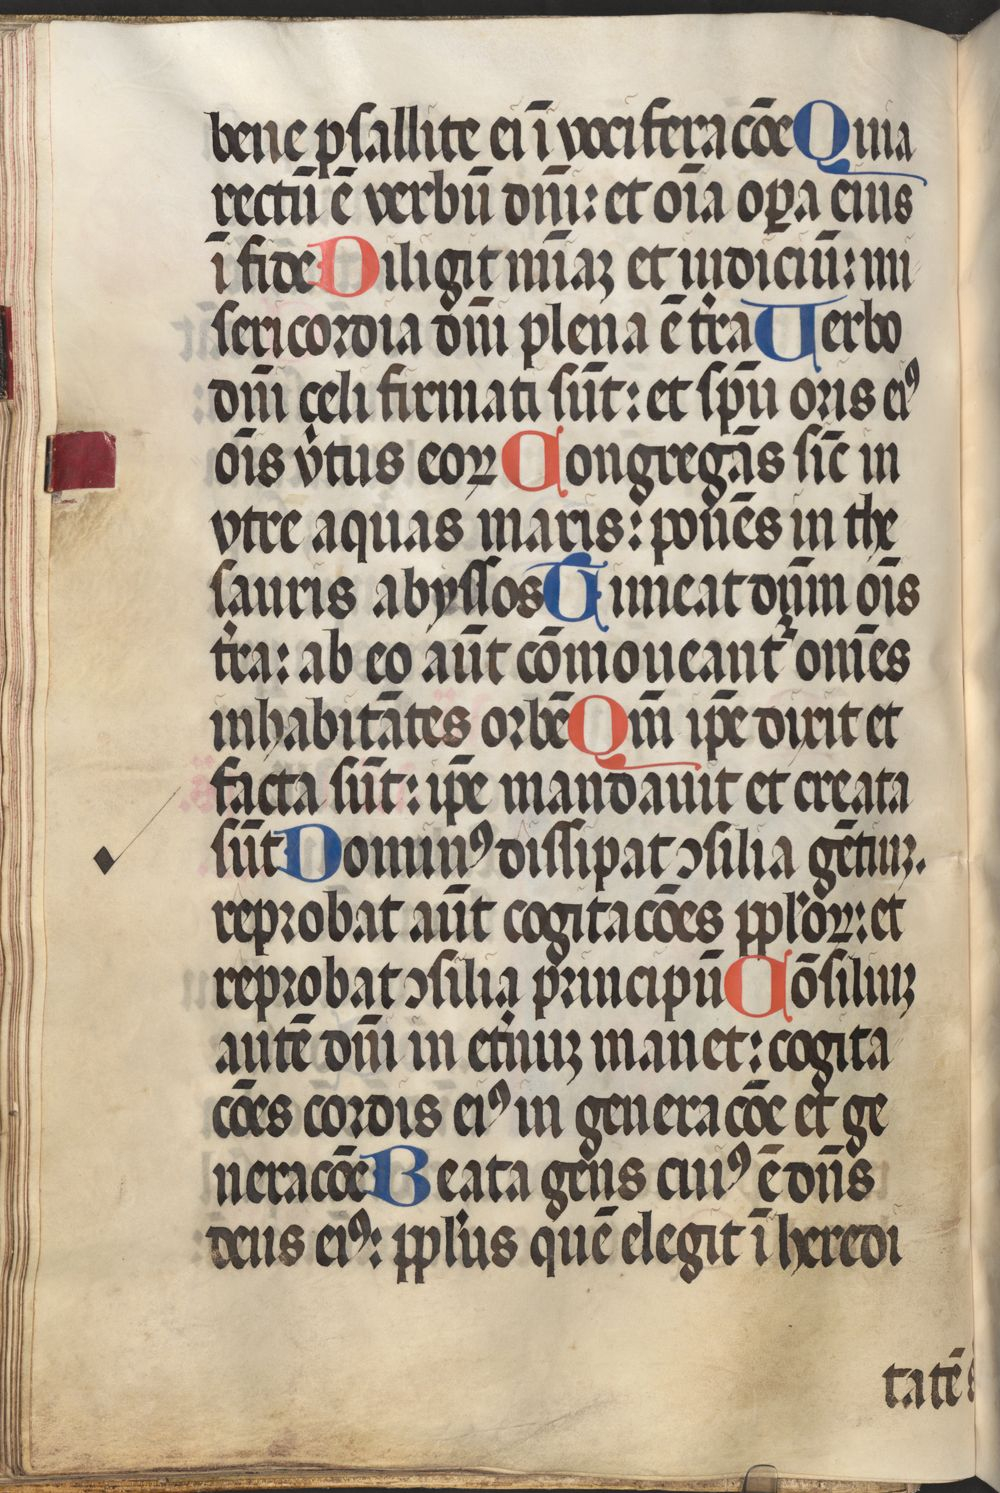 bene psallite ei ī vociferacōe Quia
rectū ē verbū dn̄i: et oīa oꝑa eius
ī fide Diligit mīaʒ et iudiciū: mi
sericordia dn̄i plena ē tr̄a Uerbo
dn̄i celi firmati sūt: et spū oris eiꝰ
oīs v̓tus eoꝝ Congregās sic̄ in
vtre aquas maris: ponēs in the
sauris abyssos Timeat dūm oīs
tr̄a: ab eo aūt cōmoueantᷣ omēs
inhabitātes orbē Qm̄ ip̄e dixit et
facta sūt: ip̄e mandauit et creata
sūt Dominꝰ dissipat ↄsilia gētiuʒ.
reprobat aūt cogitacōes ppl̓oꝝ: et
reprobat ↄsilia principū Cōsiliuʒ
autē dn̄i in et̓nuʒ manet: cogita
cōes cordis eiꝰ in generacōe et ge
neracōe Beata gens cuiꝰ ē dn̄s
deus eiꝰ: ppl̓us quē elegit ī heredi
tatē